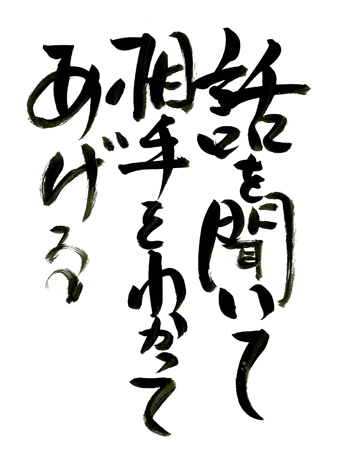 話を聞いて
相手をわかって
あげる